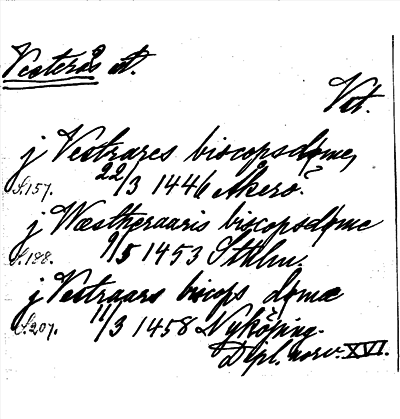 Vesterås st.
Vst.
j Vestrares biscopsdøme,
S.157. 22/3 1446 Akerö?
j Wæstheraaris biscopsdøme
S.188. 9/5 1453 Sthlm.
j Vestraars biscops dømæ
S.207. 11/3 1458 Nyköping.
Dipl. norv. XVI.